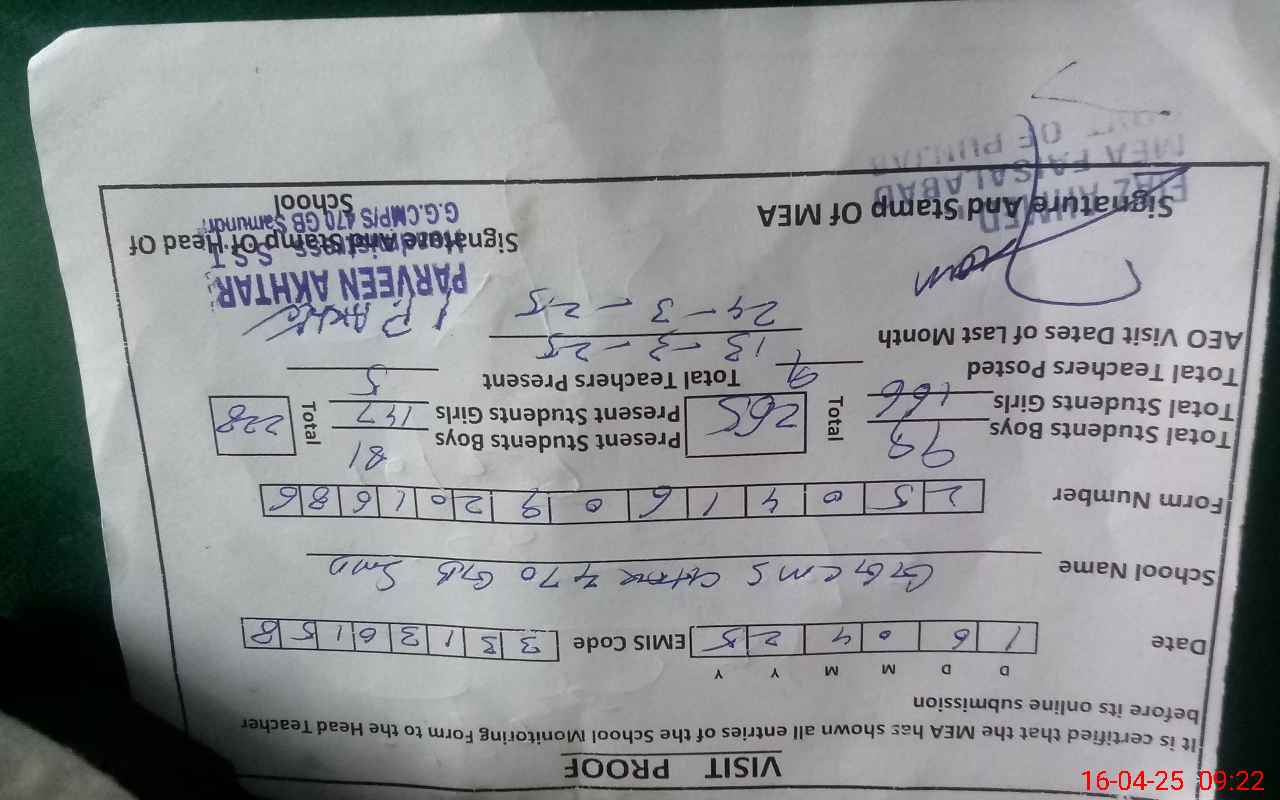 VISIT PROOF
It is certified that the MEA has shown all entries of the School Monitoring Form to the Head Teacher
before its online submission
D D M M Y Y
Date 1 6 0 4 2 5 EMIS Code 3 3 1 3 6 1 5 8
School Name GGCMS CHAK 470 GB SMD
Form Number 2 5 0 4 1 6 0 9 2 0 1 6 8 6
Total Students Boys 99 Total 265 Present Students Boys 81 Total 228
Total Students Girls 166 Present Students Girls 147
Total Teachers Posted 9 Total Teachers Present 5
AEO Visit Dates of Last Month 13-3-25
24-3-25
P. Akhtar
PARVEEN AKHTAR
S.S.T
Signature And Stamp Of MEA Signature And Stamp Of Head Of
School
G.G.CMP/S 470 GB Samundri
AHMED
MEA FAISALABAD
GOVT OF PUNJAB
16-04-25 09:22